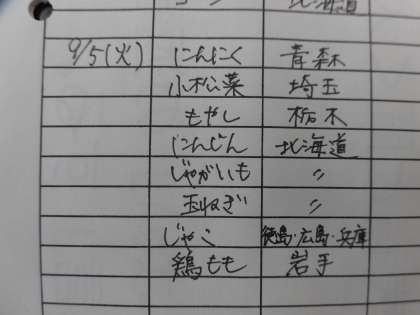 北海道
9/5(火) にんにく 青森
小松菜 埼玉
もやし 栃木
にんじん 北海道
じゃがいも 〃
玉ねぎ 〃
じゃこ 徳島・広島・兵庫
鶏もも 岩手